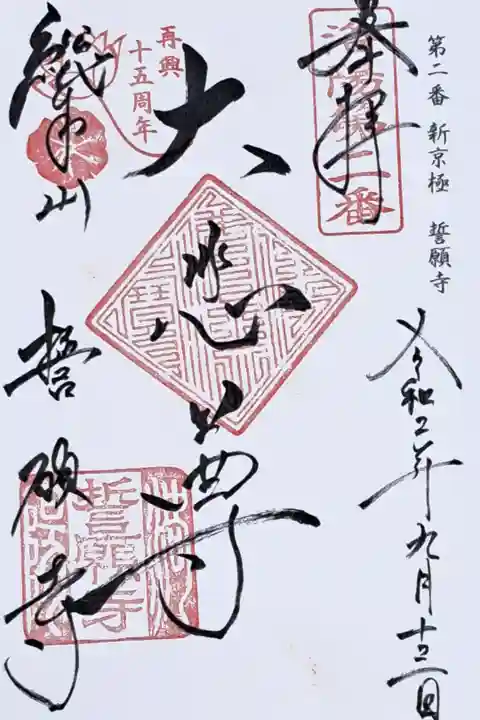 第二番 新京極 誓願寺
奉拝
洛陽第二番
令和二年九月十三日
大悲尊
再興
十五周年
誓願寺
誓願寺